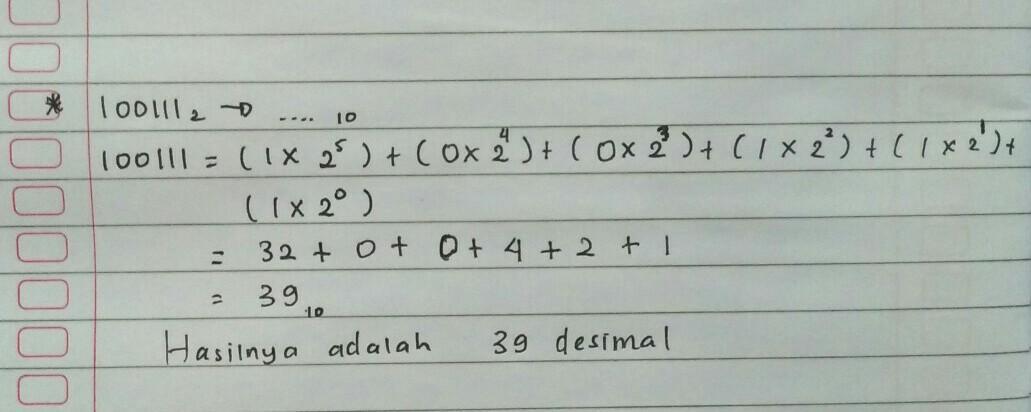 * 100111₂ → .... 10
100111 = (1 x 2⁵) + (0 x 2⁴) + (0 x 2³) + (1 x 2²) + (1 x 2¹) +
(1 x 2⁰)
= 32 + 0 + 0 + 4 + 2 + 1
= 39₁₀
Hasilnya adalah 39 desimal